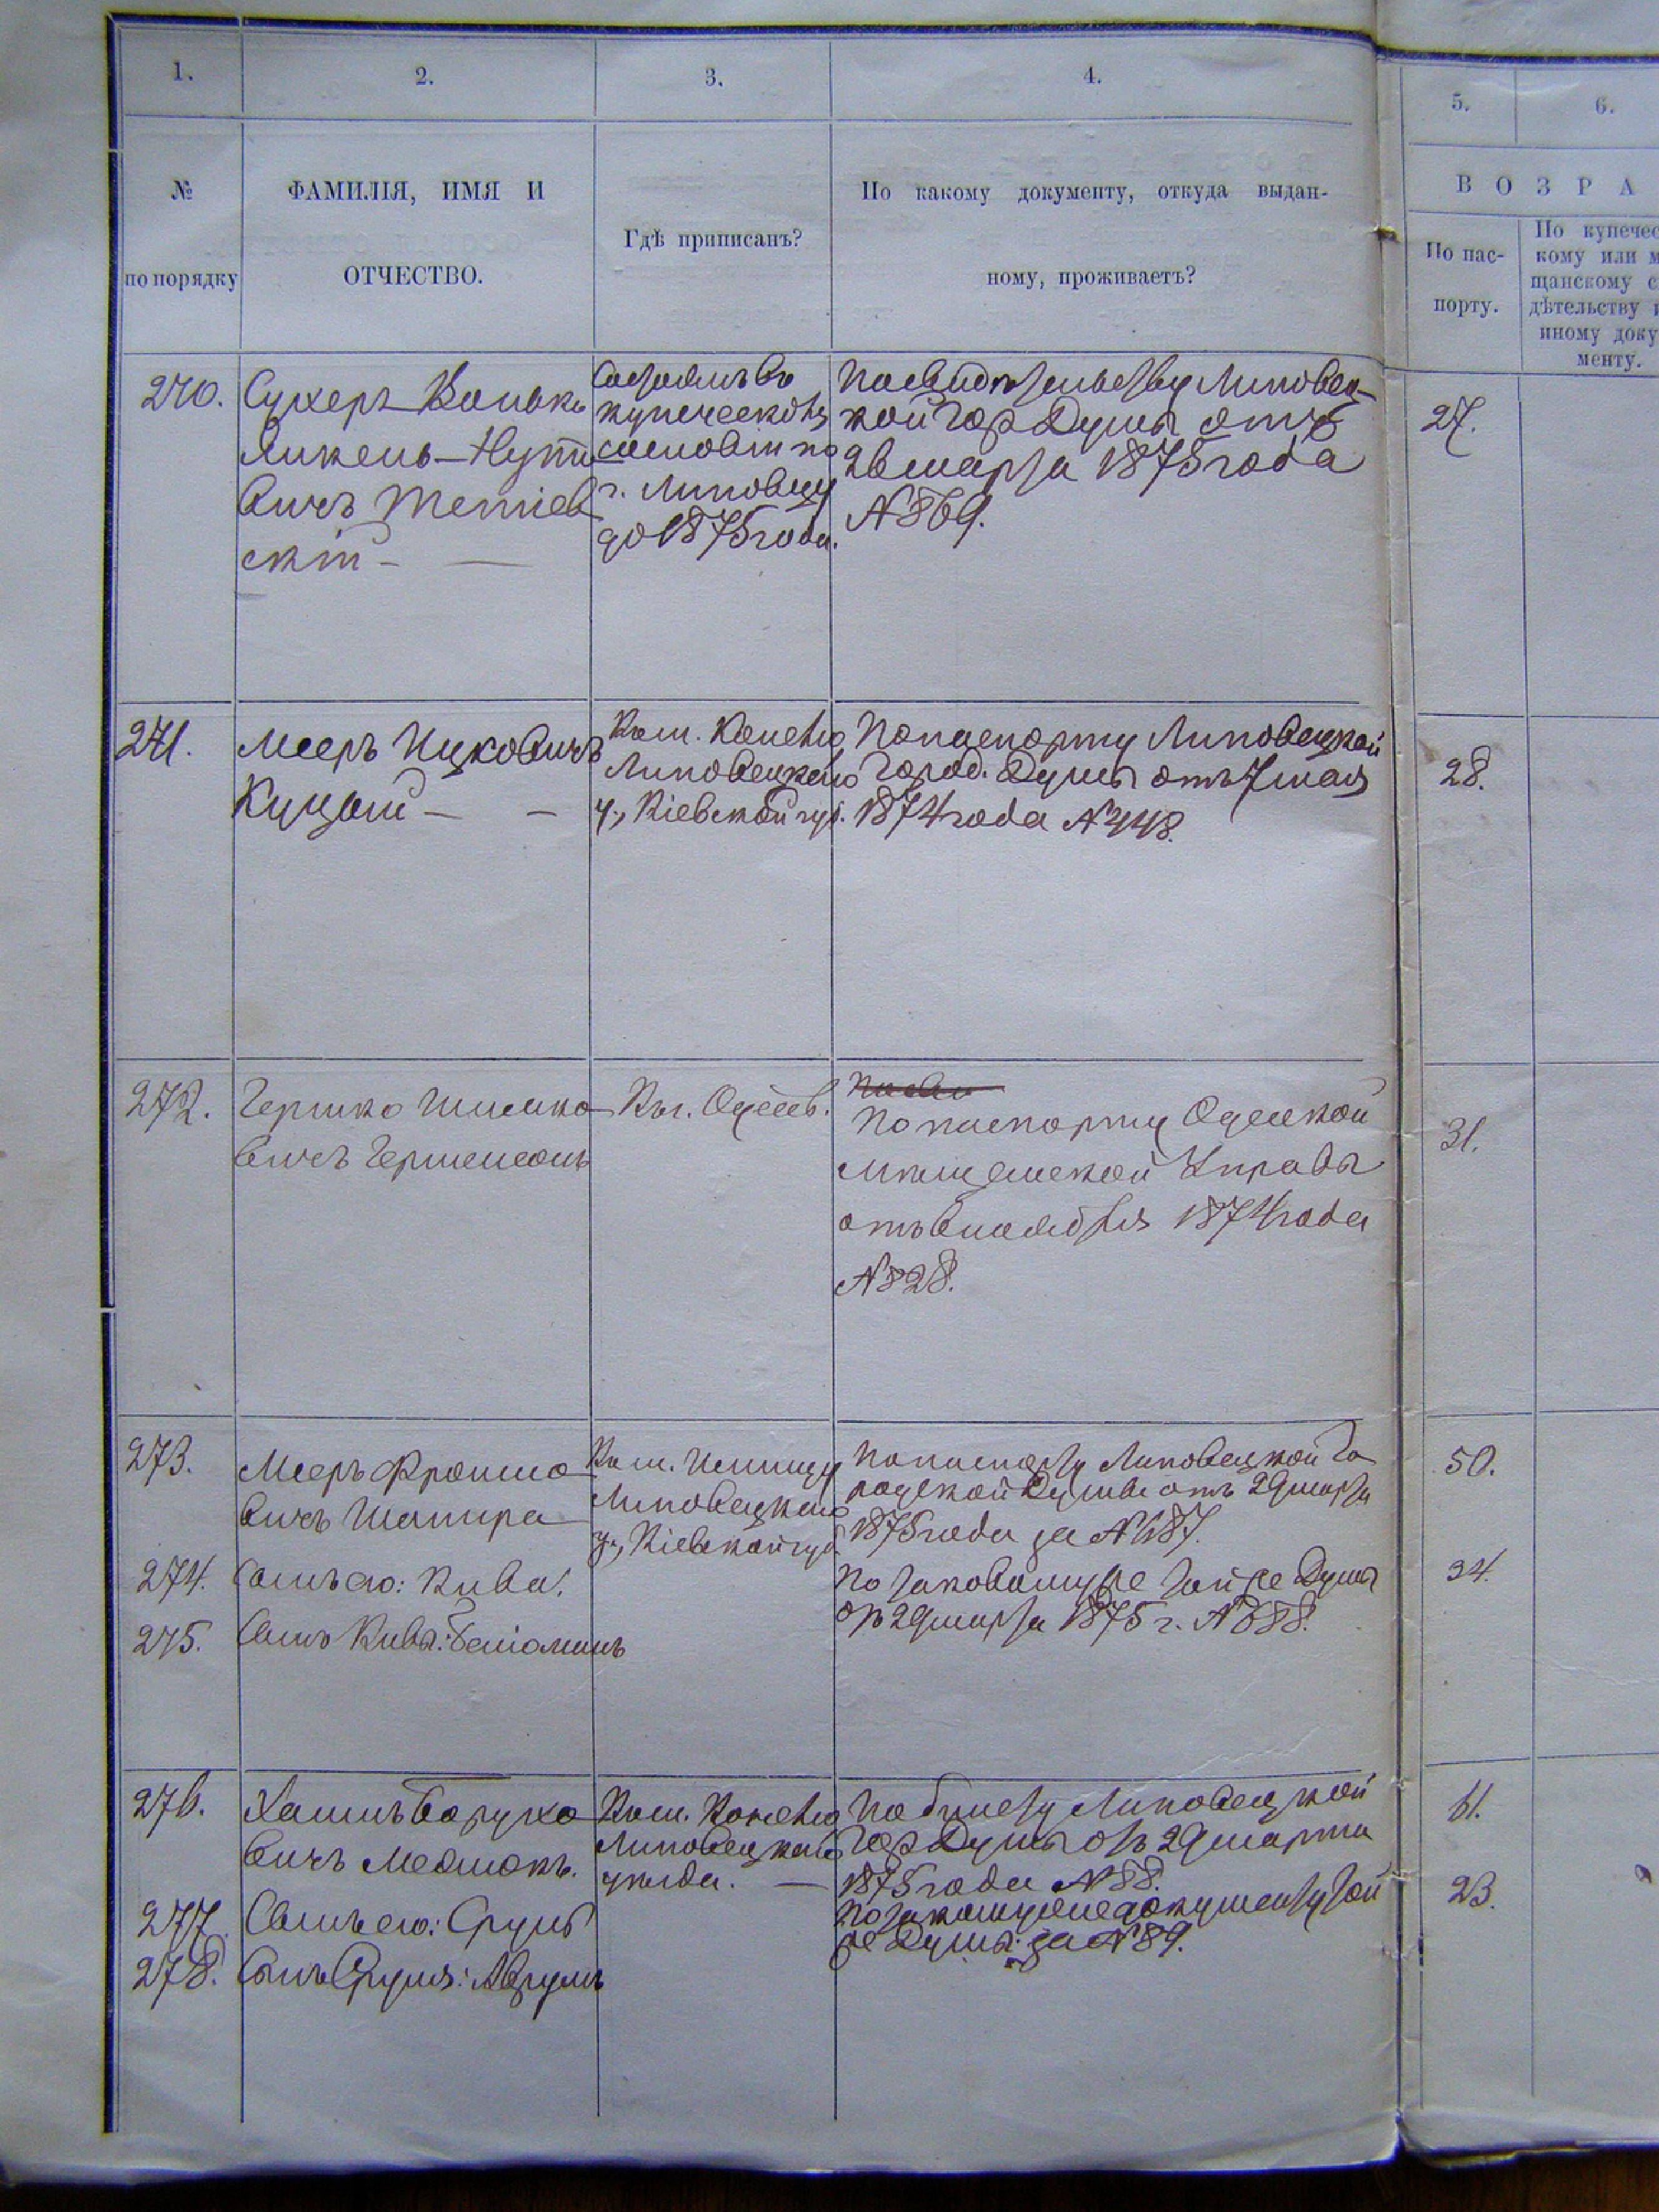 1.
2.
3.
4.
5.
6.
№
по порядку
ФАМИЛІЯ, ИМЯ И
ОТЧЕСТВО.
Гдѣ приписанъ?
По какому документу, откуда выдан-
ному, проживаетъ?
В О З Р А
По пас-
порту.
По купечес
кому или м
щанскому с
дѣтельству и
иному доку
менту.
270.
Сухеръ
Янкель-Нут
вичъ Тетіев
скій
Состоялъ въ
купеческомъ
сословіи по
г. Липовцу
до 1875 года.
По свидѣтельству Липовец-
кой Гор Думы отъ
26 марта 1875 года
№ 869.
27.
271.
Мееръ Ицковичъ
Куцый
Къ м.
Липовецкаго
у., Кіевской губ.
По паспорту Липовецкой
Город. Думы отъ 7 мая
1874 года № 448.
28.
272.
Гершко Шимко
вичъ Гершенсонъ
Къ г. Одессѣ.
По паспорту Одесской
мѣщанской Управы
отъ 6 ноября 1874 года
№ 828.
31.
273.
Мееръ Фроимо
вичъ Шапира
Къ м. Илинцу
Липовецкаго
у., Кіевской губ
По паспорту Липовецкой Го
родской Думы отъ 29 марта
1875 года за № 687.
50.
274.
Сынъ его: Кива.
По таковому же той же Думы
отъ 29 марта 1875 г. № 688.
34.
275.
Сынъ Кивы: Беніоминъ
276.
Хаимъ Борухо
вичъ
Къ м.
Липовецкаго
уѣзда.
По билету Липовецкой
Гор Думы отъ 29 марта
1875 года № 88.
61.
277.
Сынъ его: Сруль
По такому же документу той
же Думы за № 89.
23.
278.
Сынъ Сруля: Аврумъ